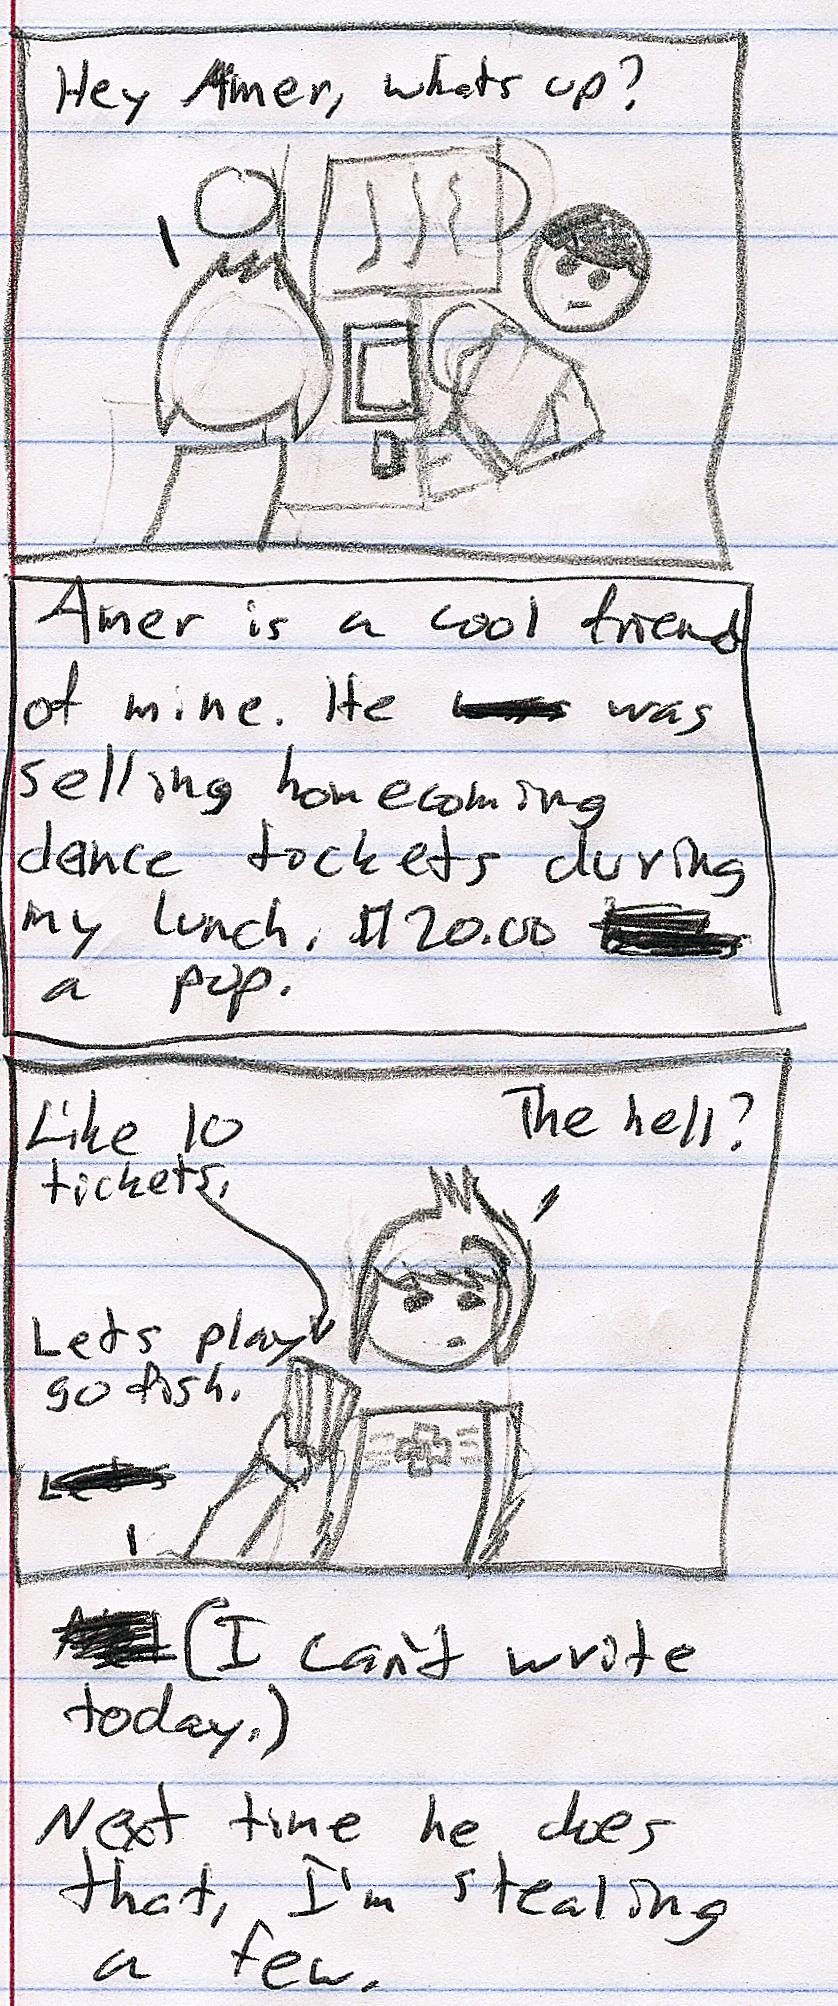 Hey Amer, whats up?
Amer is a cool friend
of mine. He was
selling homecoming
dance tockets during
my lunch. $20.00
a pop.
Like 10
tickets.
The hell?
Lets play
go fish.
(I can't write
today.)
Next time he does
that, I'm stealing
a few.